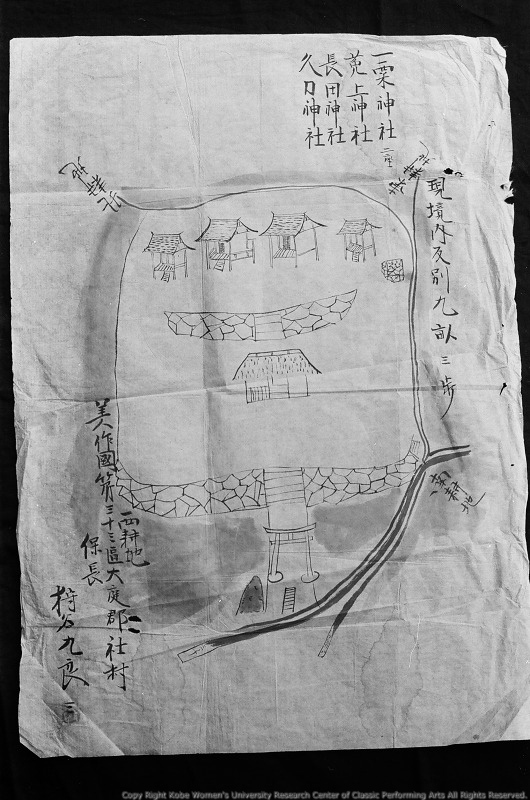 一粟神社 二座
菟上神社
長田神社
久刀神社
現境内反別九畝三歩
南耕地
西耕地
美作國第三十三區大庭郡社村
保長
Copy Right Kobe Women's University Research Center of Classic Performing Arts All Rights Reserved.